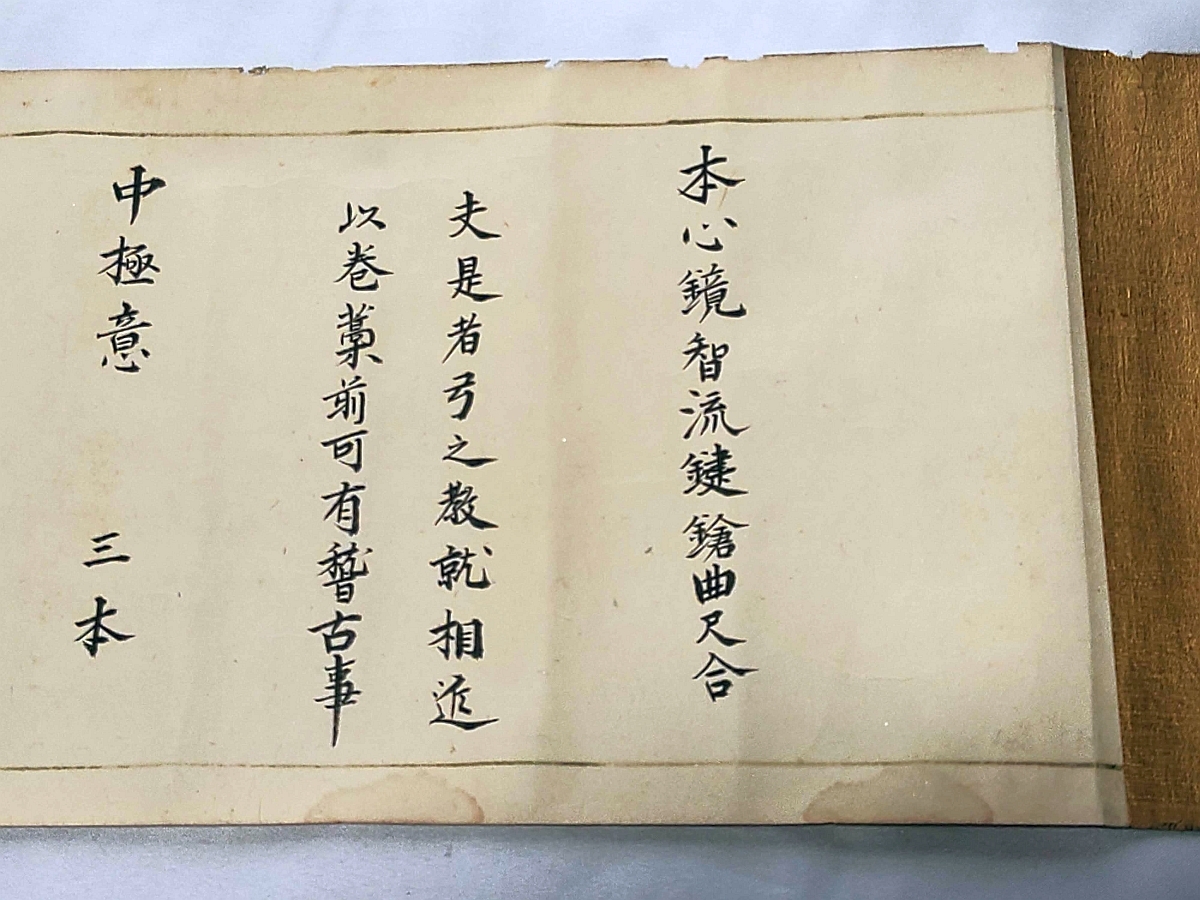 本心鏡智流鍵鎗曲尺合
夫是者弓之教就相近
以巻藁前可有稽古事
中極意　三本